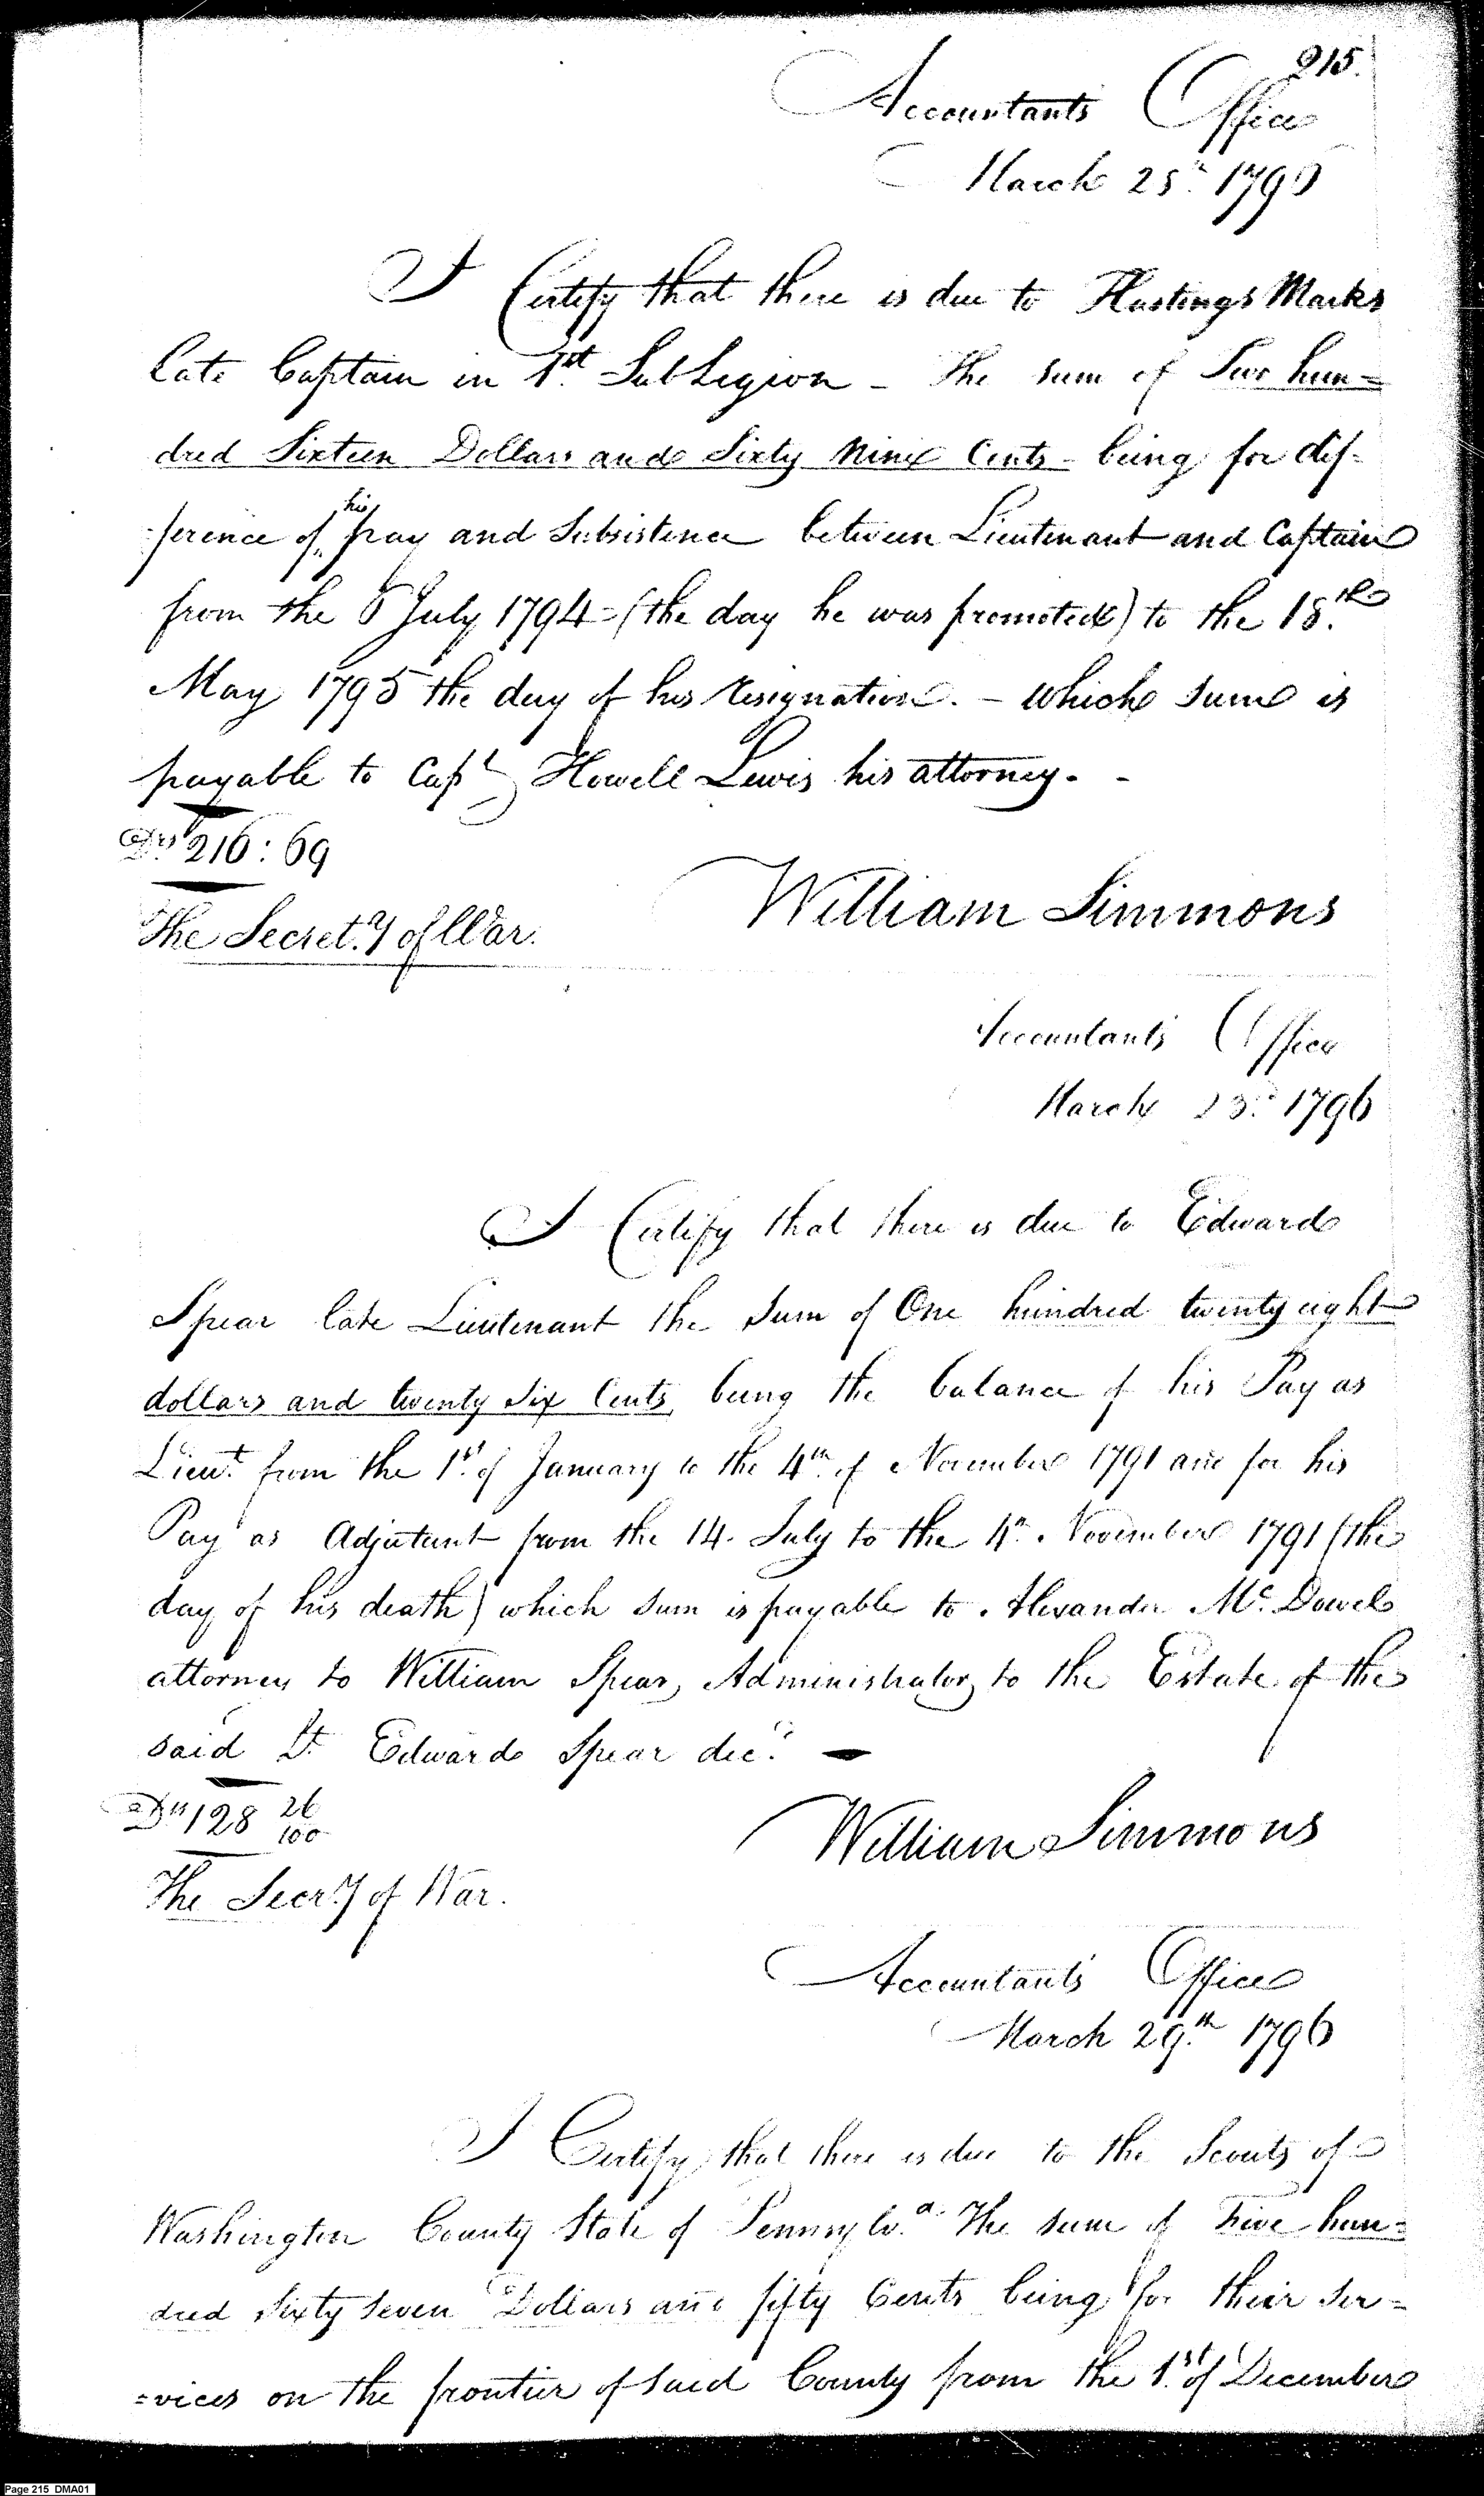 215.
Accountants Office
March 25th 1796
I Certify that there is due to Hastings Marks
late Captain in 1st Sub Legion - The sum of Two hun=
dred Sixteen Dollars and Sixty Nine Cents - being for dif-
-ference of his pay and Subsistence between Lieutenant and Captain
from the 6 July 1794 - (the day he was promoted) to the 18th
May 1795 the day of his resignation. - which sum is
payable to Capt Howell Lewis his attorney. -
Drs 216:69
William Simmons
The Secret.y of War.
Accountants Office
March 1796
I Certify that there is due to Edward
Spear late Lieutenant the Sum of One hundred twenty eight
dollars and twenty six Cents, being the balance of his Pay as
Lieut from the 1st of January to the 4th of November 1791 and for his
Pay as Adjutant from the 14. July to the 4th November 1791 (the
day of his death) which sum is payable to Alexander Mc. Dowel
attorney to William Spear, Administrator, to the Estate of the
said Lt. Edward Spear decd. —
Drs 128 26/100
William Simmons
The Secry of War.
Accountants Office
March 29th 1796
I Certify that there is due to the Scouts of
Washington County State of Pennsylva. The sum of Five hun=
dred sixty seven Dollars and fifty Cents being for their ser=
=vices on the frontier of said County from the 1st of December
Page 215 DMA01